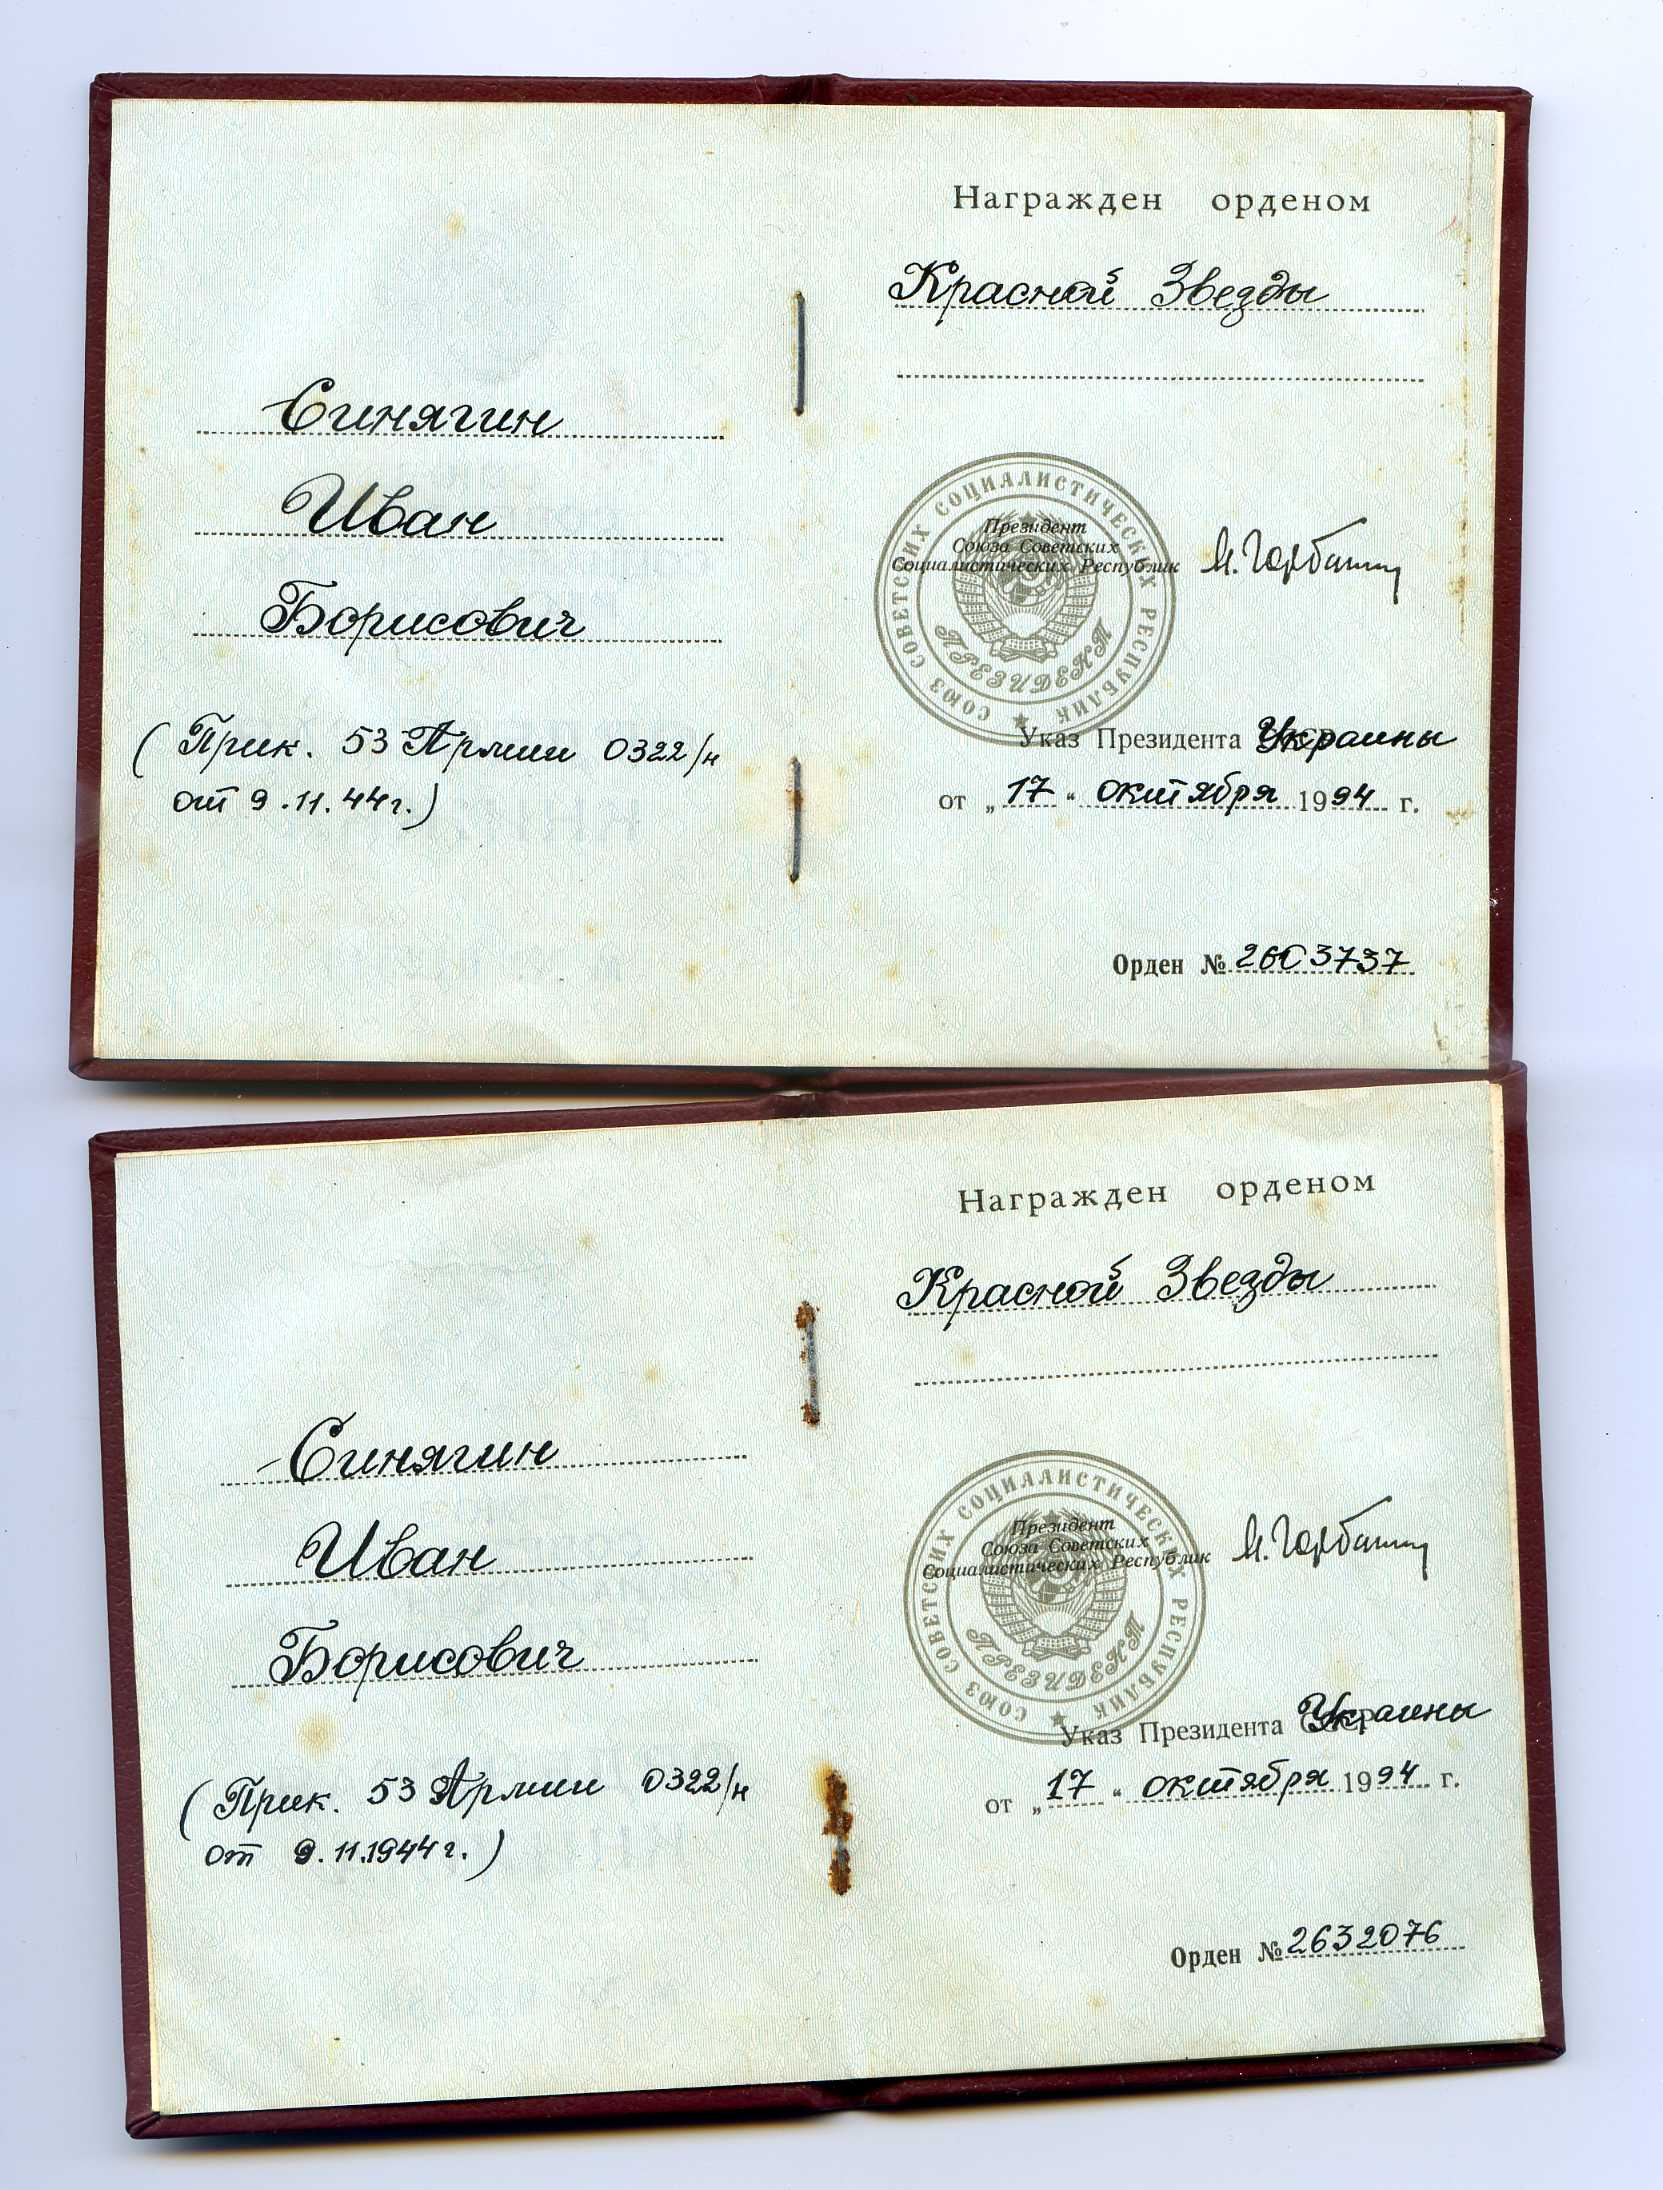 Синягин
Иван
Борисович
(Прик. 53 Армии 0322/н
от 9.11.44г.)
Награжден орденом
Красной Звезды
СОЮЗ СОВЕТСКИХ СОЦИАЛИСТИЧЕСКИХ РЕСПУБЛИК
ПРЕЗИДЕНТ
Президент
Союза Советских
Социалистических Республик
М. Горбачев
Указ Президента Украины
от „17“ октября 1994 г.
Орден №
Синягин
Иван
Борисович
(Прик. 53 Армии 0322/н
от 9.11.1944г.)
Награжден орденом
Красной Звезды
СОЮЗ СОВЕТСКИХ СОЦИАЛИСТИЧЕСКИХ РЕСПУБЛИК
ПРЕЗИДЕНТ
Президент
Союза Советских
Социалистических Республик
М. Горбачев
Указ Президента Украины
от „17“ октября 1994 г.
Орден № 2632076